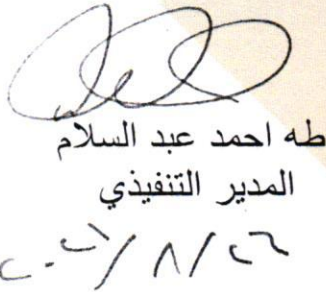 طه احمد عبد السلام
المدير التنفيذي
٢٠٢١/٨/٢٦